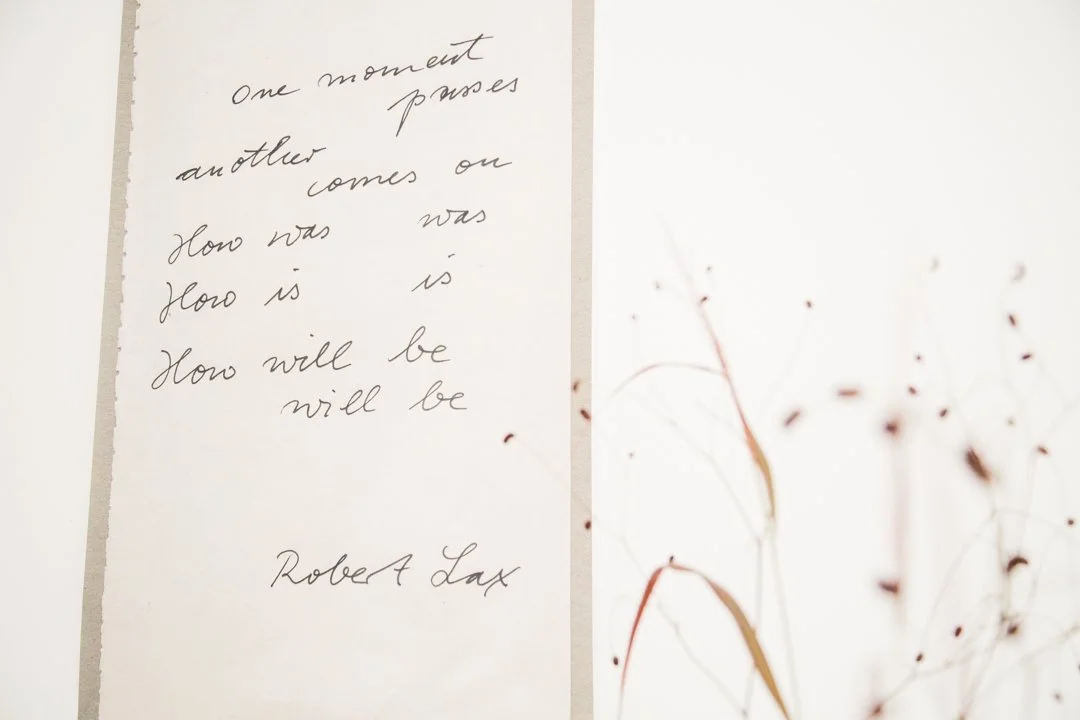 One moment
passes
another
comes on
How was was
How is is
How will be
will be
Robert Lax